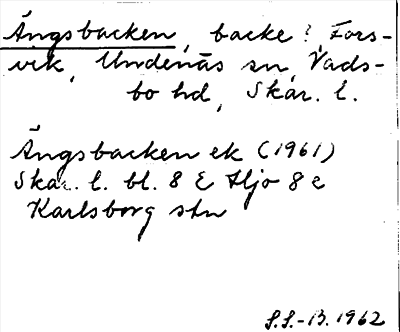 Ängsbacken, backe i Fors-
vik, Undenäs sn, Vads-
bo hd, Skar. l.
Ängsbacken ek (1961)
Skar. l. bl. 8 E Hjo 8 e
Karlsborg stn
S.S.-B. 1962